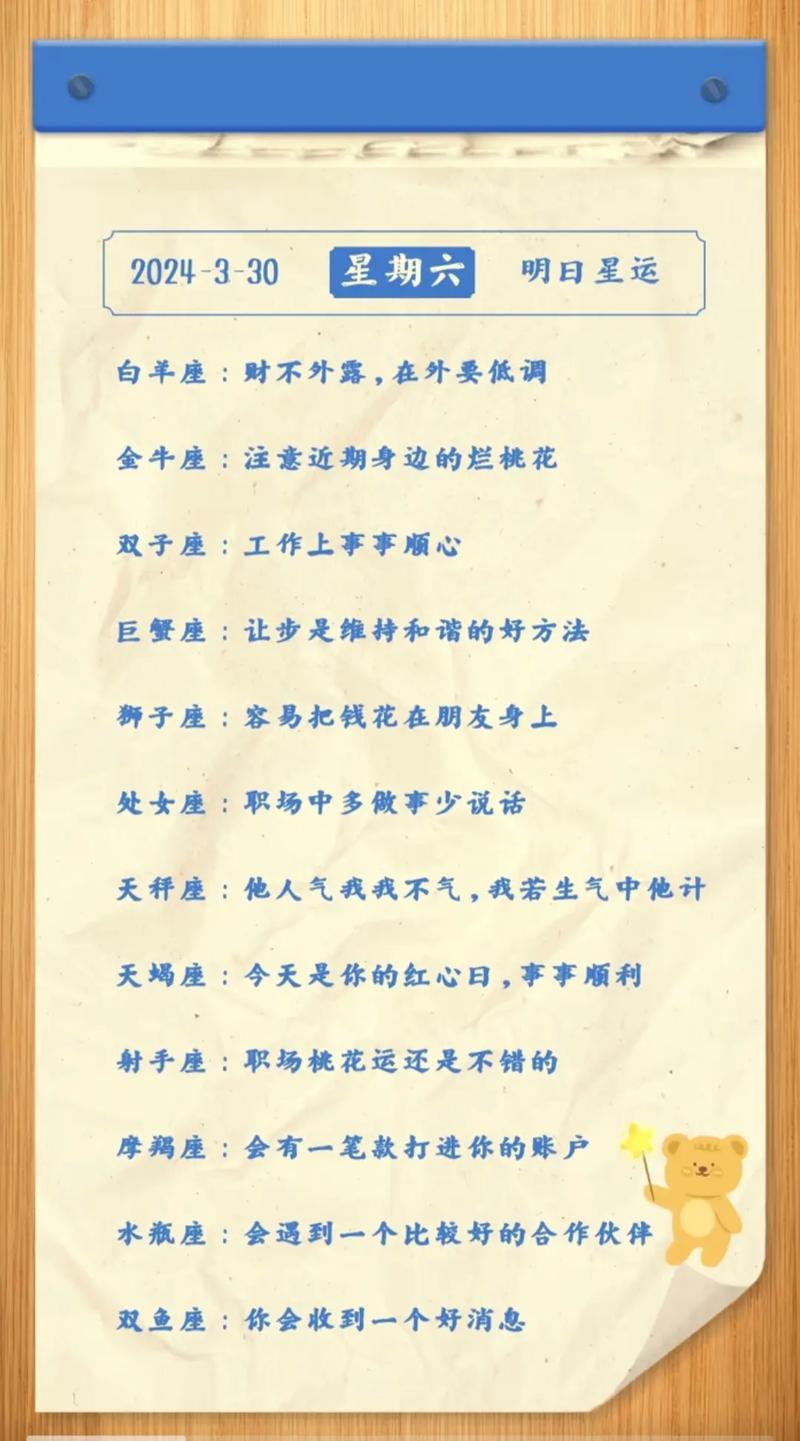 2024-3-30 星期六 明日星运
白羊座：财不外露,在外要低调
金牛座：注意近期身边的烂桃花
双子座：工作上事事顺心
巨蟹座：让步是维持和谐的好方法
狮子座：容易把钱花在朋友身上
处女座：职场中多做事少说话
天秤座：他人气我我不气,我若生气中他计
天蝎座：今天是你的红心日,事事顺利
射手座：职场桃花运还是不错的
摩羯座：会有一笔款打进你的账户
水瓶座：会遇到一个比较好的合作伙伴
双鱼座：你会收到一个好消息